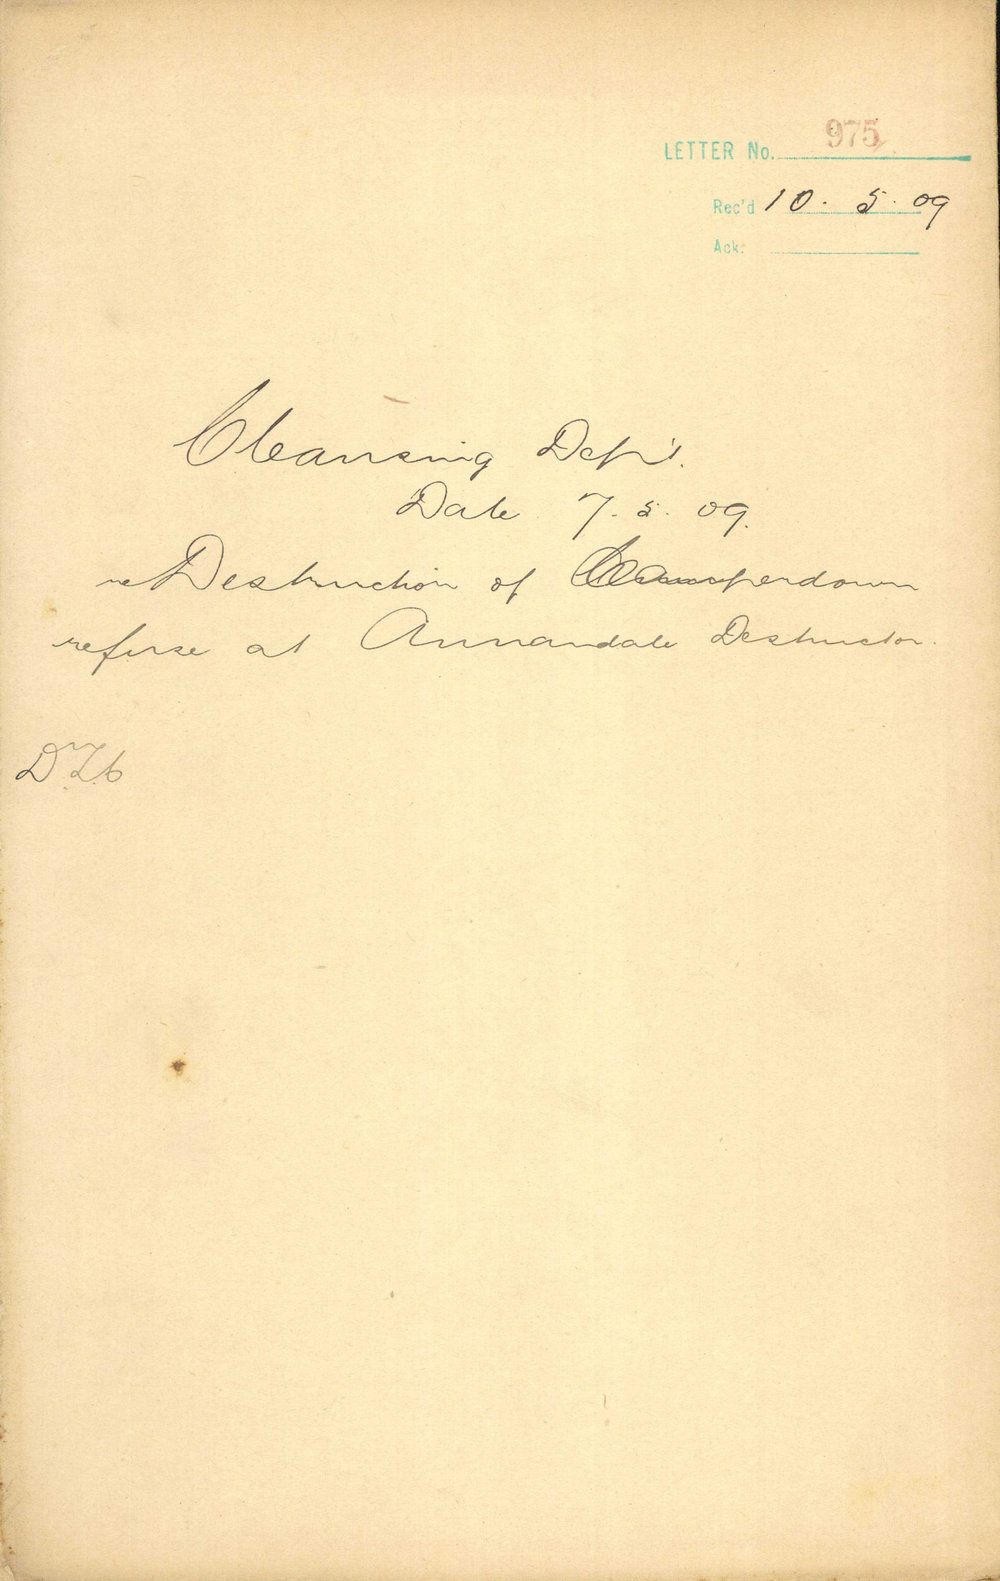 LETTER No. 975
Rec'd 10. 5. 09
Ack.
Cleansing Dep't.
Date 7. 5. 09.
re Destruction of Camperdown
refuse at Annandale Destructor.